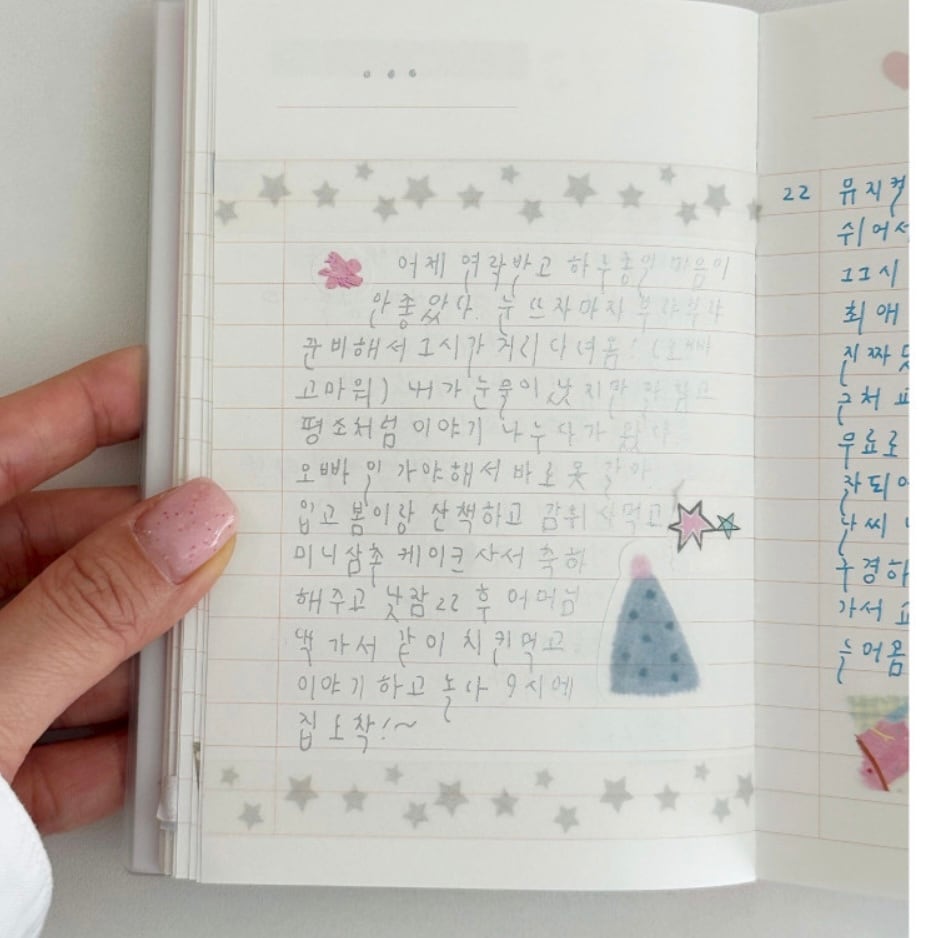 어제 연락받고 하루종일 마음이
안 좋았다. 눈 뜨자마자 부랴부랴
준비해서 1시가 처리 다녀옴! (오빠
고마워) 내가 눈물이 났지만
평소처럼 이야기 나누다가 왔다
오빠 일 가야해서 바로 옷 갈아
입고 봄이랑 산책하고 사먹고
미니삼촌 케이크 사서 축하
해주고 낮잠 zz 후 어머님
댁 가서 같이 치킨먹고
이야기하고 놀다 9시에
집 도착!~
22
뮤지컬
쉬어서
그시
최애
진짜
근처
무료로
날씨
구경하
가서
눈어옴